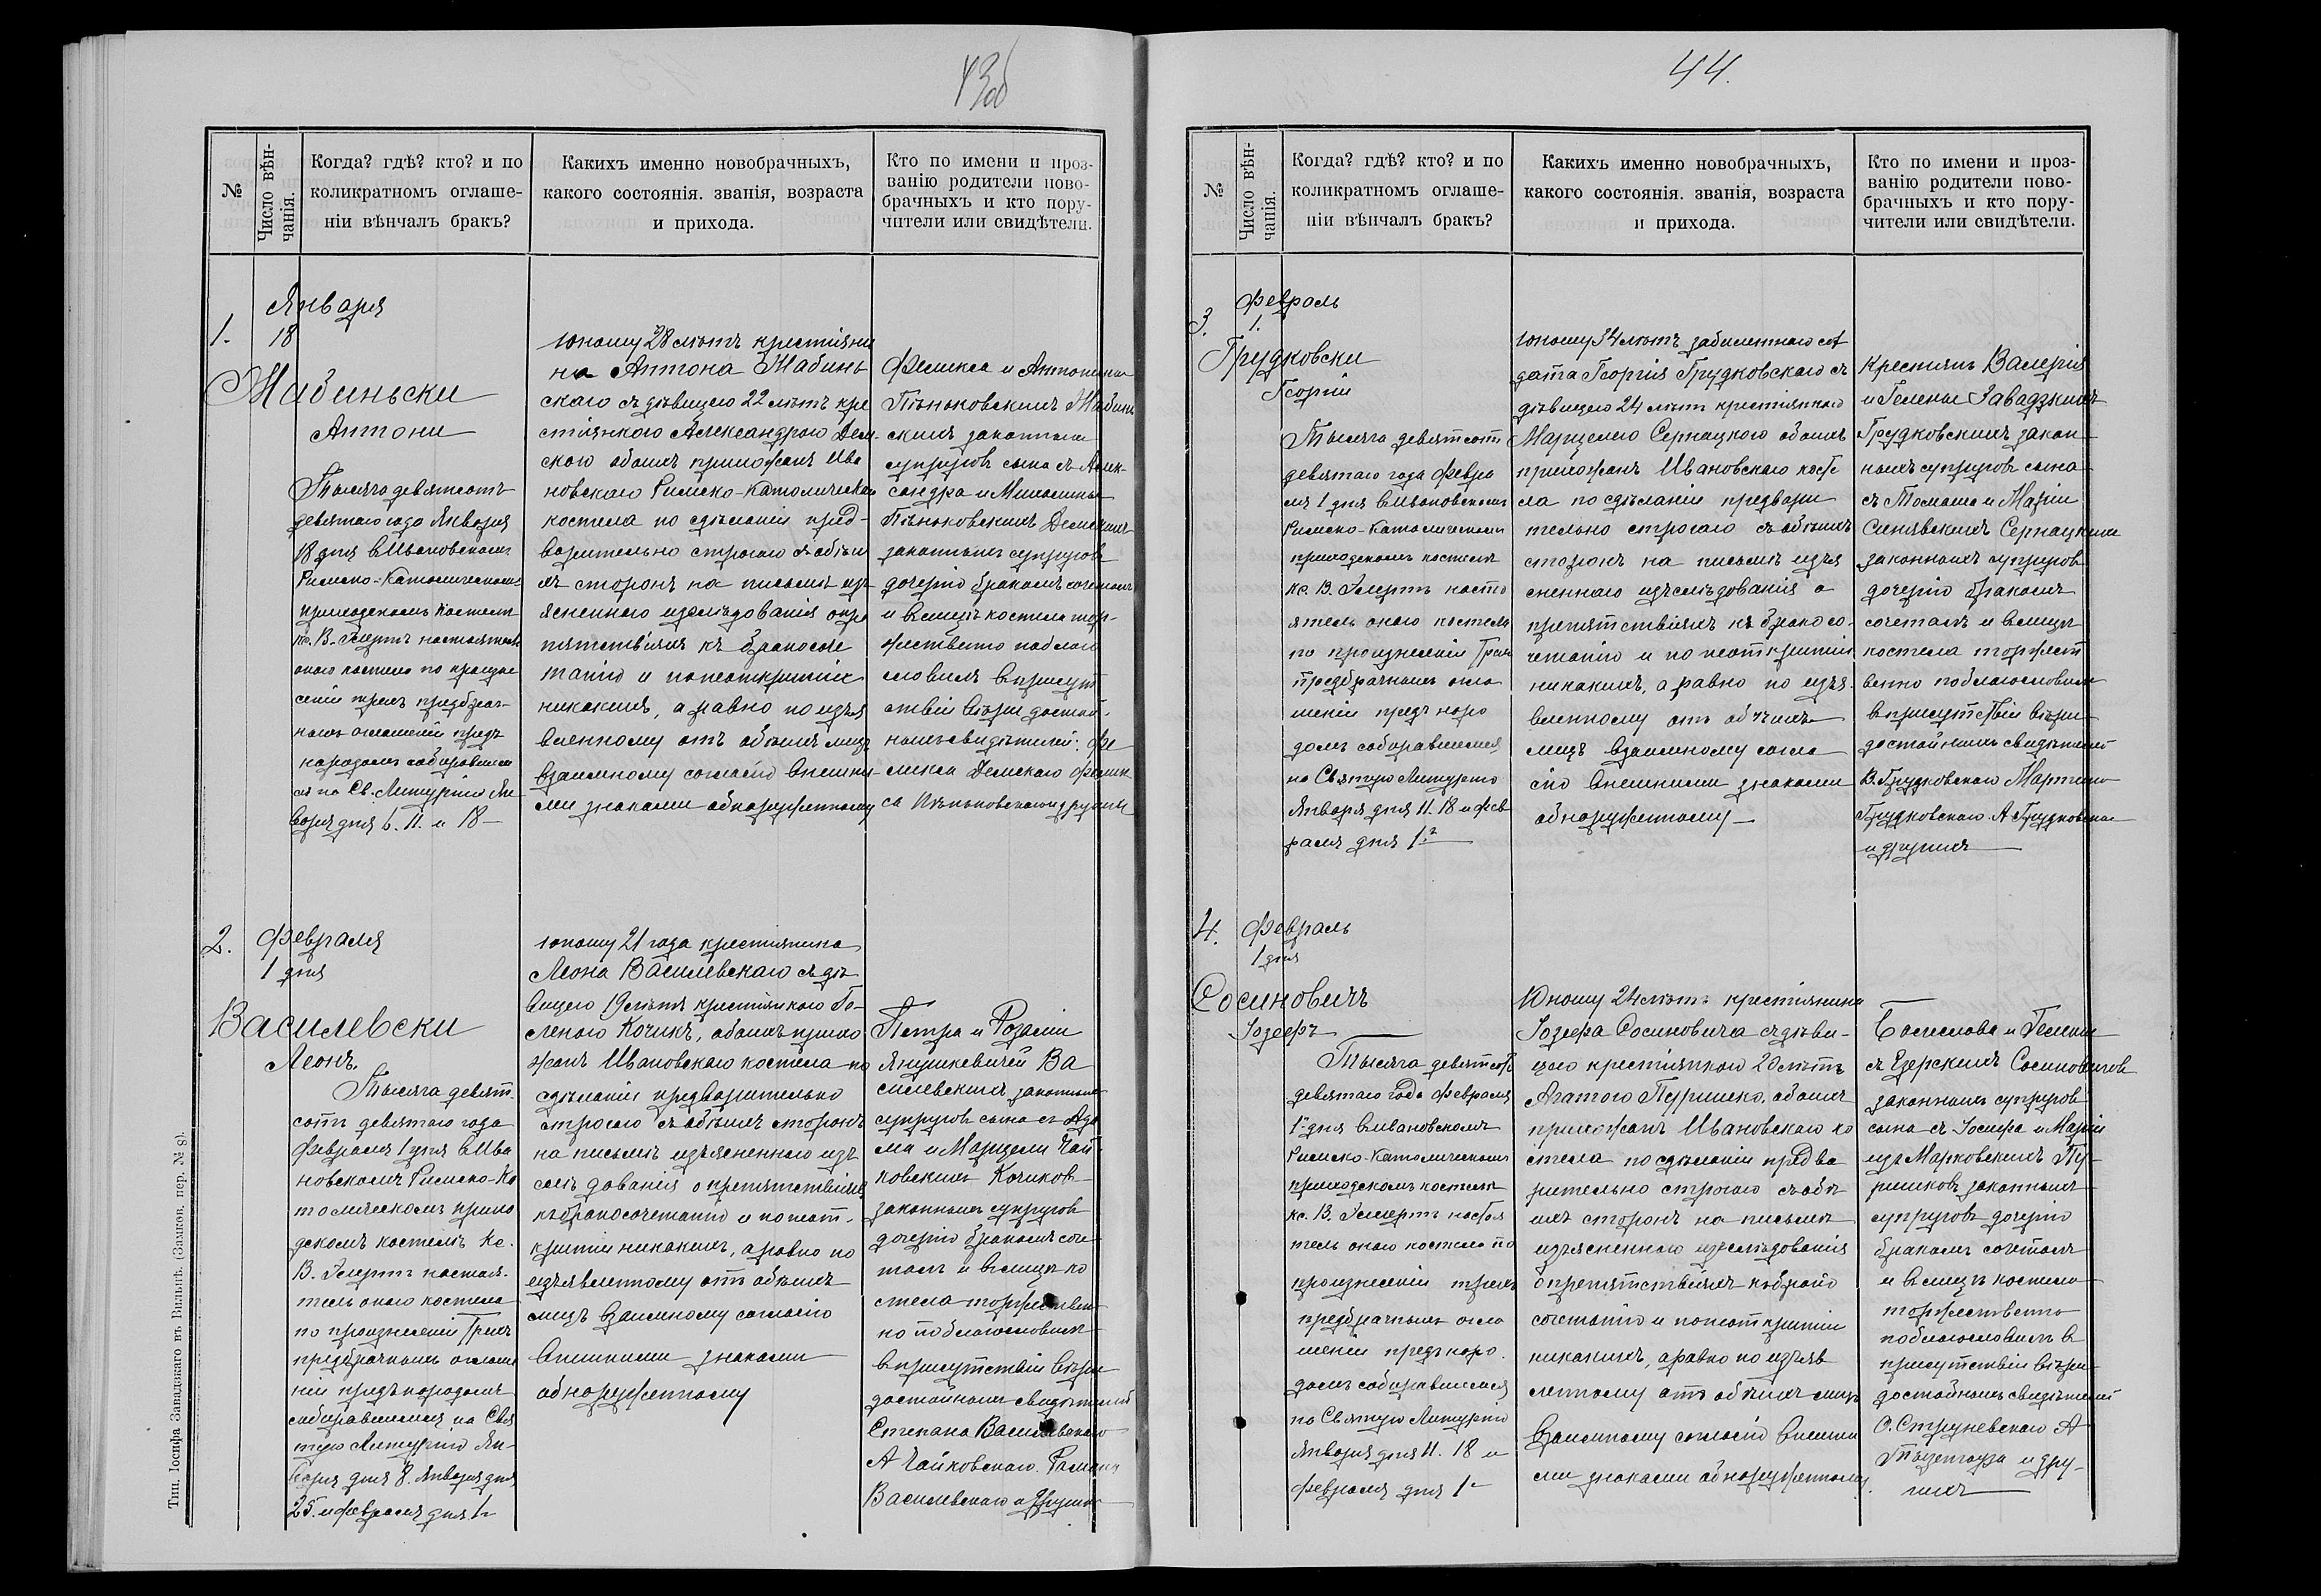 43об
№
Число вѣн-
чанія.
Когда? гдѣ? кто? и по
коликратномъ оглаше-
ніи вѣнчалъ бракъ?
Какихъ именно новобрачныхъ,
какого состоянія. званія, возраста
и прихода.
Кто по имени и проз-
ванію родители ново-
брачныхъ и кто пору-
чители или свидѣтели.
1.
Января
18
Жабиньски
Антони
Тысяча девятсотъ
девятаго года Января
18 дня в Ивановскомъ
Римско-Католическомъ
приходскомъ костелѣ
Кс. В. настоятель
оного костела по произне
сеніи трехъ предбрач-
ныхъ оглашеній предъ
народомъ собравшим
ся на Св. Литургію Ян
варя дня 6. 11. и 18
юношу 28 лѣтъ крестіяни
на Антона Жабинь
скаго съ дѣвицею 22 лѣтъ кре
стіянкою Александрою Дем-
скою обоихъ прихожанъ Ива
новскаго Римско-Католическаго
костела по сдѣланіи пред-
варительно строгаго съ обѣи
хъ сторонъ на письмѣ изъ
ясненнаго изслѣдованія о пре
пятствіяхъ къ бракосоче
танію и по неоткрытіи
никакихъ, а равно по изъя
вленному отъ обѣихъ лицъ
взаимному согласію внешни-
ми знаками обнаруженному
Феликса и Антонины
Пѣньковскихъ Жабинь
скихъ законныхъ
супруговъ сына съ Алек-
сандра и Михалины
Пѣньковскихъ Демскихъ
законныхъ супруговъ
дочерію бракомъ сочеталъ
и в лицѣ костела тор-
жественно поблаго
словилъ в присут
ствіи вѣры достой-
ныхъ свидѣтелей: Фе
ликса Демскаго Фелик
са Пѣньковскаго и другихъ
2.
Февраля
1 дня
Василевски
Леонъ.
Тысяча девят-
сотъ девятаго года
Февраля 1 дня в Ива
новскомъ Римско-Ка
толическомъ прихо
дскомъ костелѣ Кс.
В. настоя-
тель оного костела
по произнесеніи трехъ
предбрачныхъ оглаше
ній предъ народомъ
собравшимся на Свя
тую Литургію Ян-
варя дня 8. Января дня
25. и февраля дня 1
юношу 21 года крестіянина
Леона Василевскаго съ дѣ
вицею 19 лѣтъ крестіянкою Ге-
леною Кочикъ, обоихъ прихо
жанъ Ивановскаго костела по
сдѣланіи предварительно
строгаго съ обѣихъ сторонъ
на письмѣ изъясненнаго изъ
слѣдованія о препятствіяхъ
къ бракосочетанію и по неот-
крытіи никакихъ, а равно по
изъявленному отъ обѣихъ
лицъ взаимному согласію
внешними знаками
обнаруженному
Петра и Розаліи
Янушкевичей Ва
силевскихъ законныхъ
супруговъ сына съ Ада
ма и Марцели Чай
ковскихъ Кочиковъ
законныхъ супруговъ
дочерію бракомъ соче-
талъ и в лицѣ ко
стела торжествен
но поблагословилъ
в присутствіи вѣры
достойныхъ свидѣтелей
Степана Василевскаго
А Чайковскаго. Романа
Василевскаго и другихъ
Тип. Іосифа Завадзкаго въ Вильнѣ. (Замков. пер. № 8).
44.
№
Число вѣн-
чанія.
Когда? гдѣ? кто? и по
коликратномъ оглаше-
ніи вѣнчалъ бракъ?
Какихъ именно новобрачныхъ,
какого состоянія. званія, возраста
и прихода.
Кто по имени и проз-
ванію родители ново-
брачныхъ и кто пору-
чители или свидѣтели.
3.
Февраль
1.
Грудковски
Георгій
Тысяча девятсотъ
девятаго года Февра
ля 1 дня в Ивановскомъ
Римско-Католическомъ
приходскомъ костелѣ
Кс. В. насто
ятель оного костела
по произнесеніи трехъ
предбрачныхъ огла
шеній предъ наро
домъ собравшимся
на Святую Литургію
Января дня 11. 18 и фев
раля дня 1
юношу 34 лѣтъ сол
дата Георгія Грудковскаго съ
дѣвицею 24 лѣтъ крестіянкою
Марцелею Сернацкою обоихъ
прихожанъ Ивановскаго косте
ла по сдѣланіи предвари
тельно строгаго съ обѣихъ
сторонъ на письмѣ изъя
сненнаго изъслѣдованія о
препятствіяхъ къ бракосо-
четанію и по неоткрытіи
никакихъ, а равно по изъя-
вленному отъ обѣихъ
лицъ взаимному согла
сію внешними знаками
обнаруженному
Крестьянъ Валерія
и Гелены Завадзкихъ
Грудковскихъ закон
ныхъ супруговъ сына
съ Томаша и Маріи
Синявскихъ Сернацкихъ
законныхъ супруговъ
дочерію бракомъ
сочеталъ и в лицѣ
костела торжест
венно поблагословилъ
в присутствіи вѣры
достойныхъ свидѣтелей
В. Грудковскаго Мартина
Грудковскаго А Грудковскаго
и другихъ
4.
Февраль
1 дня
Сосиновичъ
Іозефъ
Тысяча девятсотъ
девятаго года Февраля
1 дня в Ивановскомъ
Римско-Католическомъ
приходскомъ костелѣ
Кс. В. настоя
тель оного костела по
произнесеніи трехъ
предбрачныхъ огла
шеній предъ наро-
домъ собравшимся
на Святую Литургію
Января дня 11. 18 и
февраля дня 1
Юношу 24 лѣтъ крестіянина
Іозефа Сосиновича съ дѣви-
цею крестіянкою 20 лѣтъ
Агатою Пуришко. обоихъ
прихожанъ Ивановскаго ко
стела по сдѣланіи предва
рительно строгаго съ обѣ
ихъ сторонъ на письмѣ
изъясненнаго изслѣдованія
о препятствіяхъ къ брако
сочетанію и по неоткрытіи
никакихъ, а равно по изъяв
ленному отъ обѣихъ лицъ
взаимному согласію внешни
ми знаками обнаруженному.
Болеслава и Гелены
съ Езерскихъ Сосиновичовъ
законныхъ супруговъ
сына съ Іосифа и Маріи
изъ Марковскихъ Пу-
ришковъ законныхъ
супруговъ дочерію
бракомъ сочеталъ
и в лицѣ костела
торжественно
поблагословилъ в
присутствіи вѣры
достойныхъ свидѣтелей
О. Струневскаго А
и дру-
гихъ